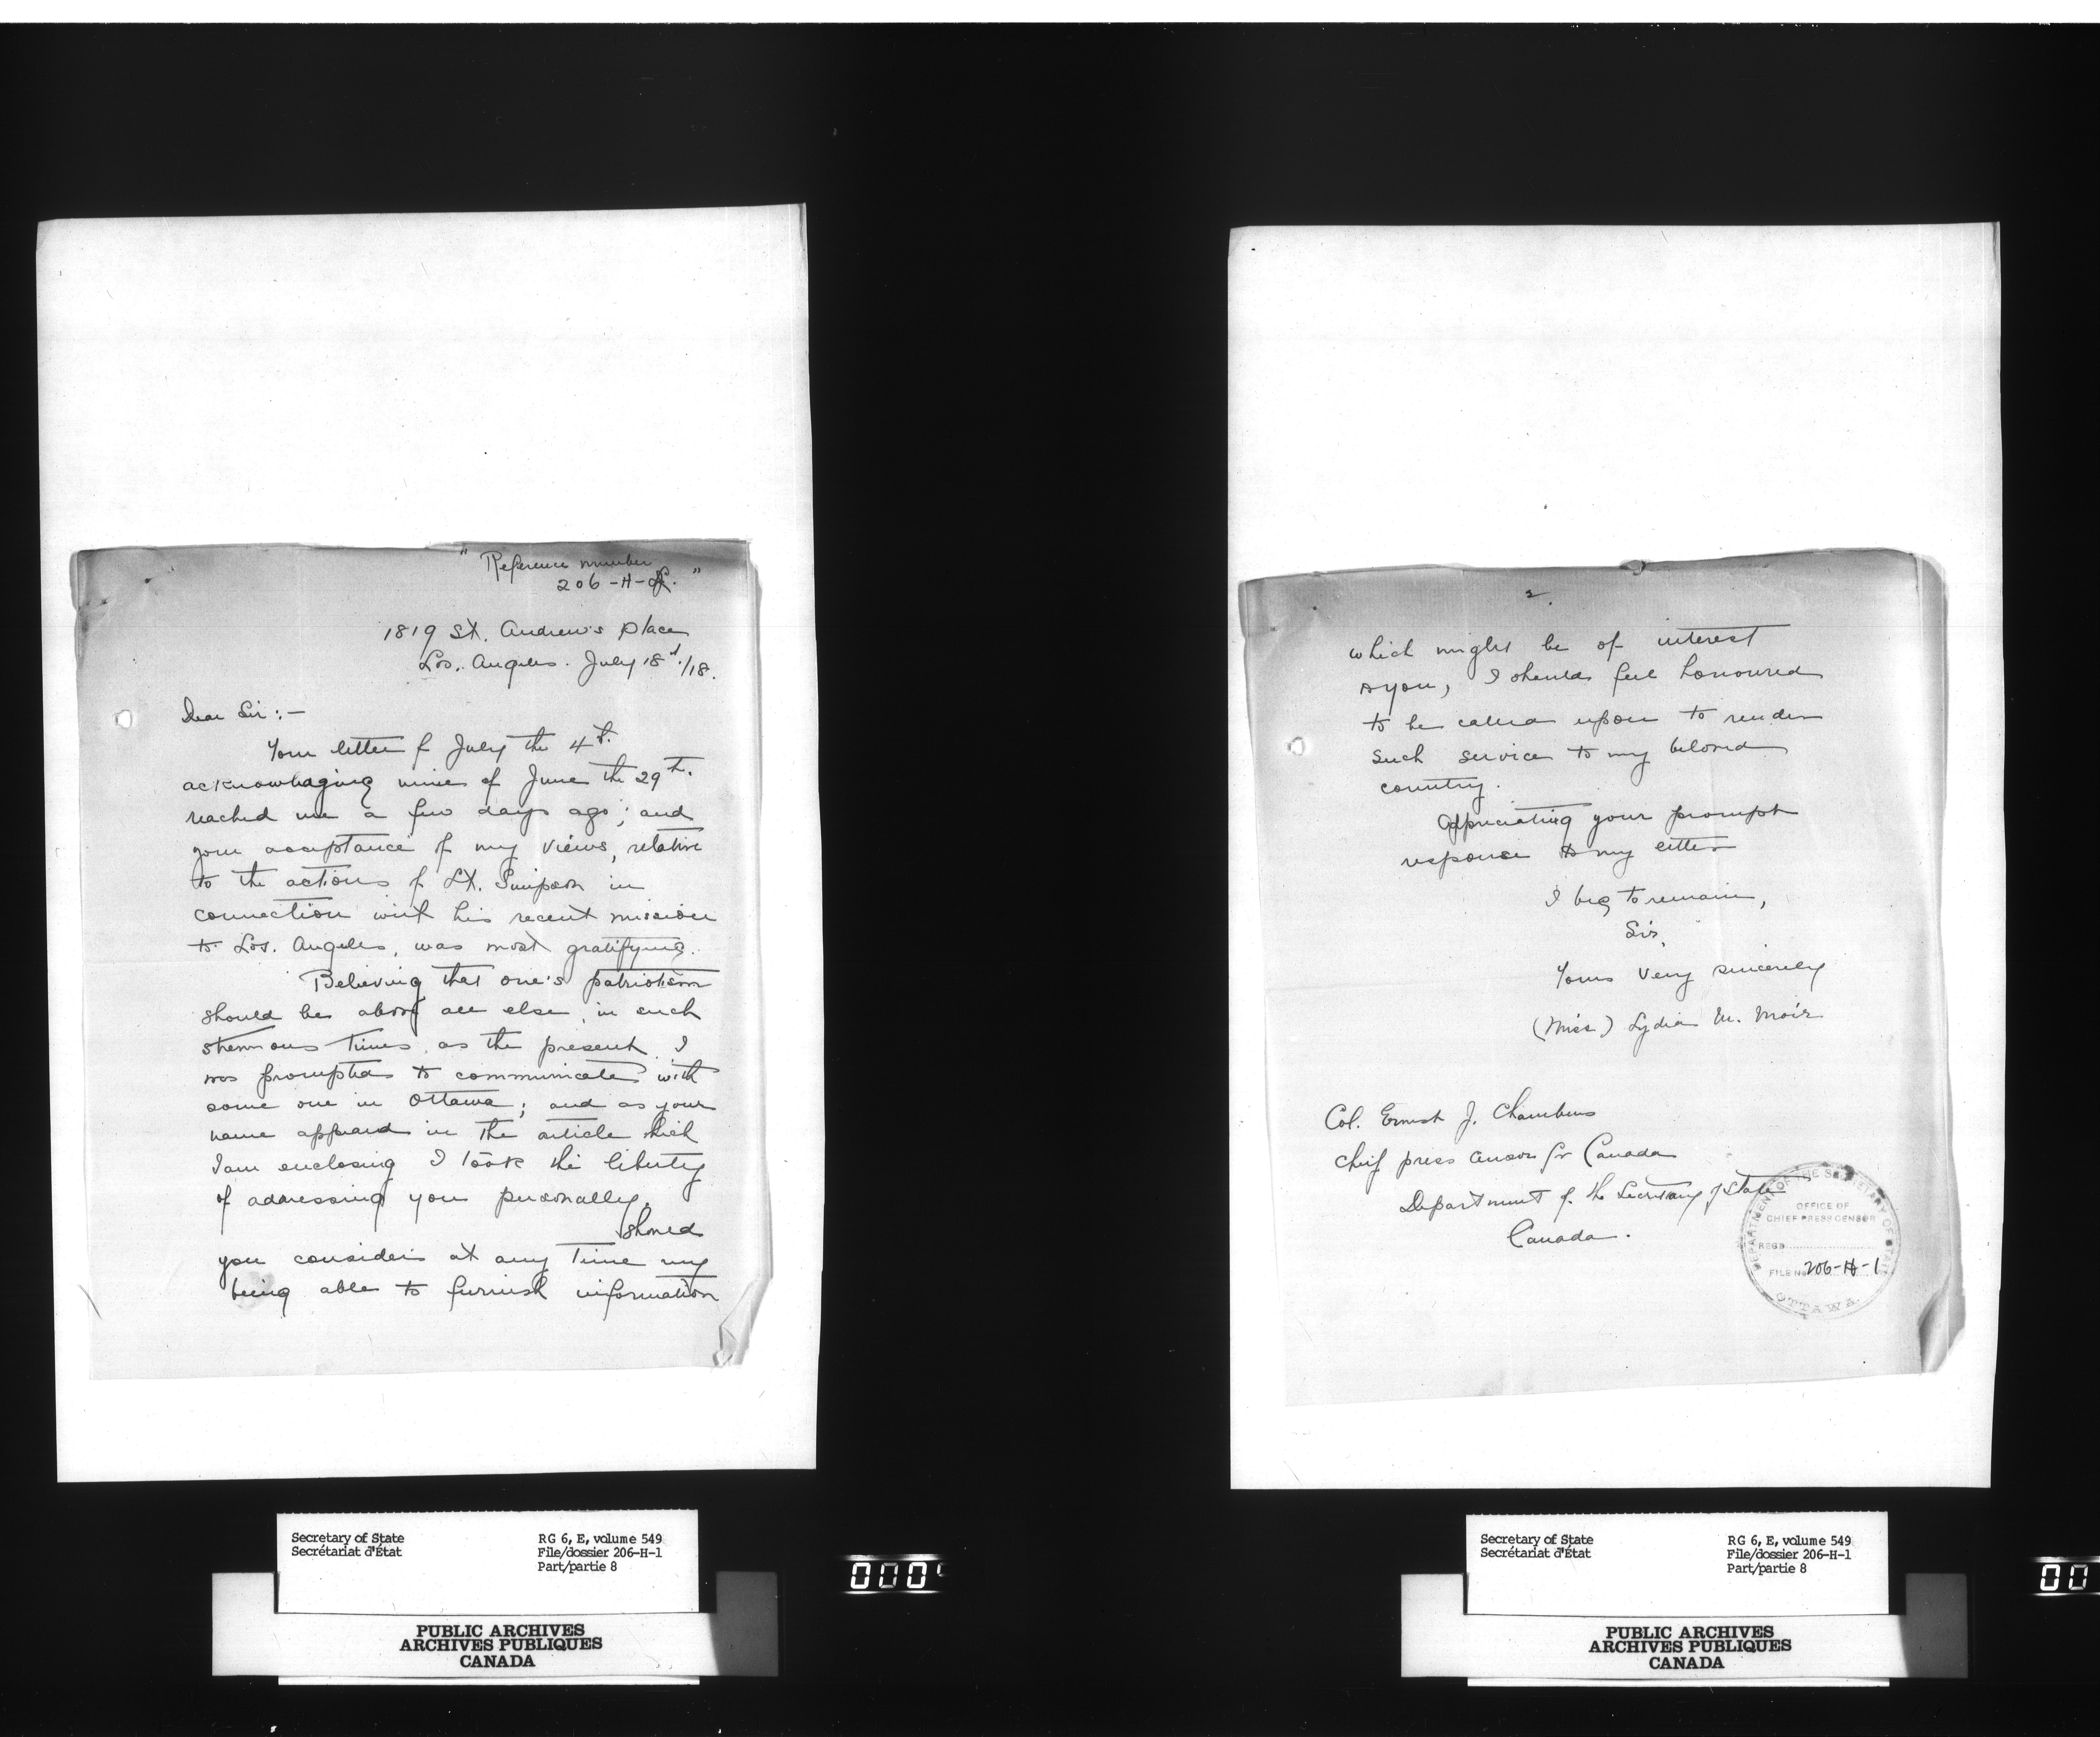 " Reference number
206-H-
1819 St. Andrew's Place
Los. Angeles. July 18th/18.
Dear Sir:—
Your letter of July the 4th.
acknowledging mine of June the 29th.
reached me a few days ago; and
your acceptance of my views, relative
to the actions of Lt. Simpson in
connection with his recent mission
to Los. Angeles, was most gratifying.
Believing that one's patriotism
should be above all else, in such
strenuous times, as the present, I
was prompted to communicate with
some one in Ottawa; and as your
name appeared in the article which
I am enclosing I took the liberty
of addressing you personally.
Should
you consider at any time my
being able to furnish information
Secretary of State
Secrétariat d'État
RG 6, E, volume 549
File/dossier 206-H-1
Part/partie 8
PUBLIC ARCHIVES
ARCHIVES PUBLIQUES
CANADA
000
2.
which might be of interest
to you, I should feel honoured
to be called upon to render
such service to my beloved
country.
Appreciating your prompt
response to my letter
I beg to remain,
Sir,
Yours very sincerely
(Miss) Lydia M. Moir
Col. Ernest J. Chambers
Chief press censor for Canada
Department of the Secretary of State
Canada.
DEPARTMENT OF THE SECRETARY OF STATE
OFFICE OF
CHIEF PRESS CENSOR
REGD
FILE No 206-H-1
OTTAWA.
Secretary of State
Secrétariat d'État
RG 6, E, volume 549
File/dossier 206-H-1
Part/partie 8
PUBLIC ARCHIVES
ARCHIVES PUBLIQUES
CANADA
00